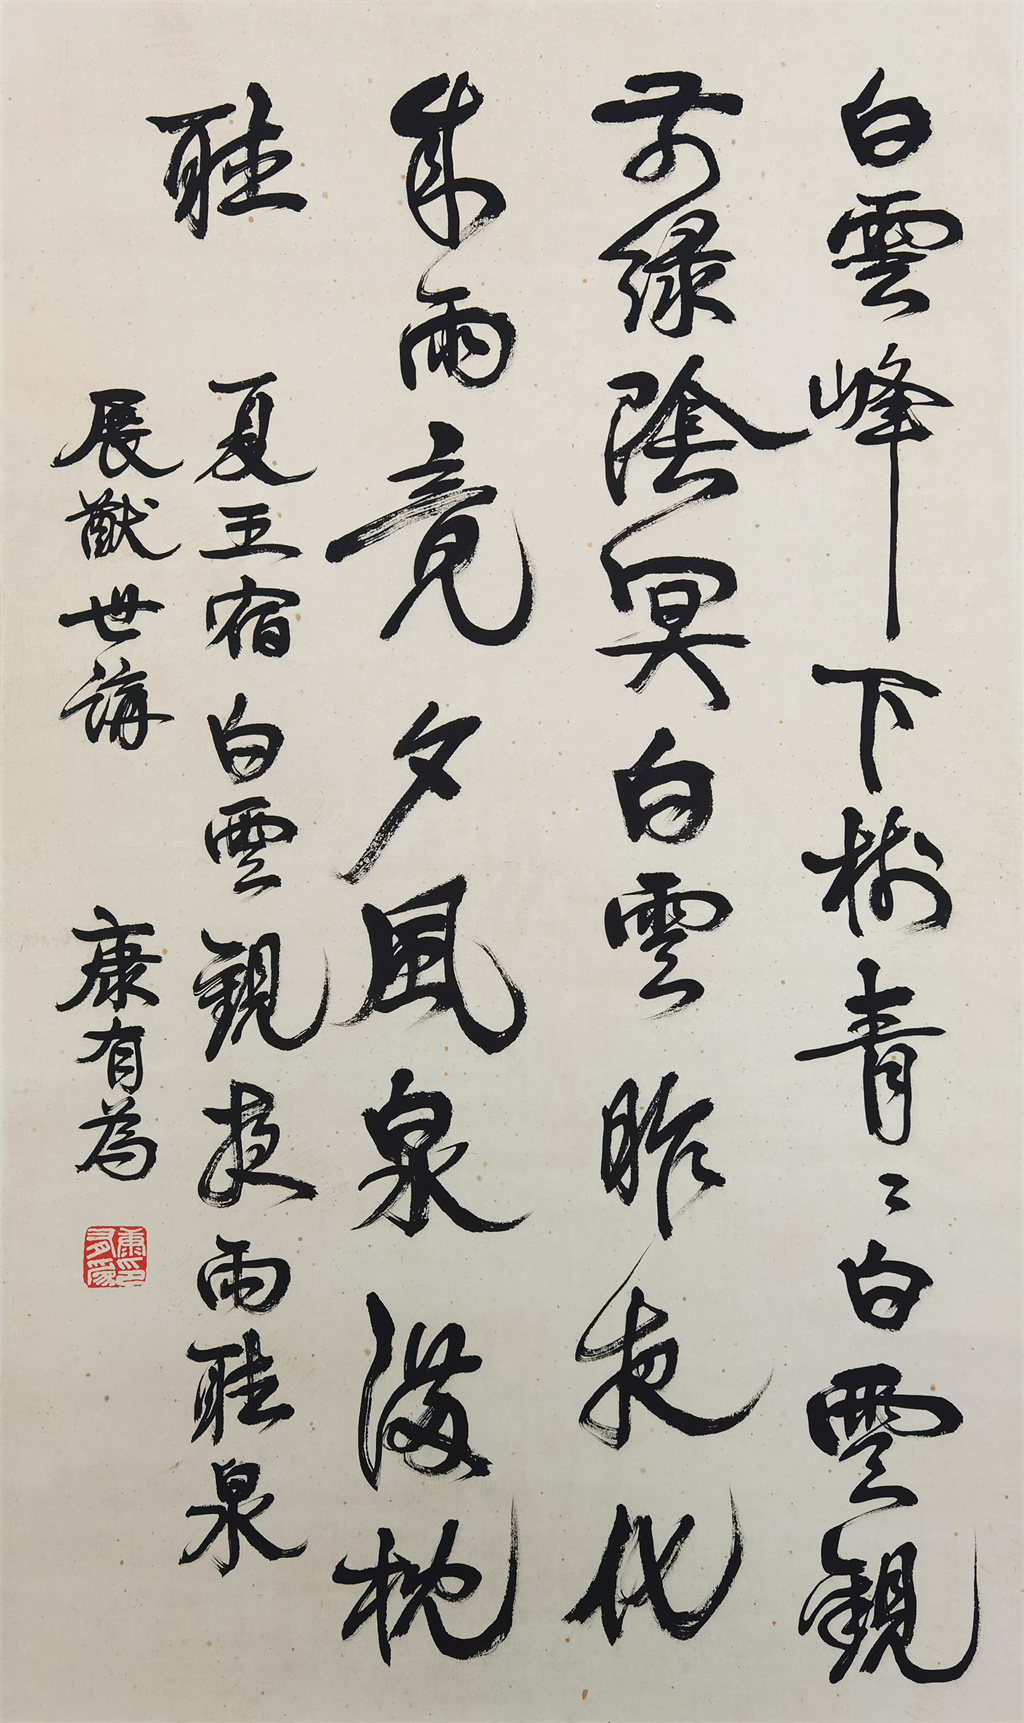 白雲峰下樹青〻白雲觀
前綠陰冥白雲昨夜化
成雨竟夕風泉滿枕
聽
夏五宿白雲觀夜雨聽泉
展猷世講 康有為
康有為印